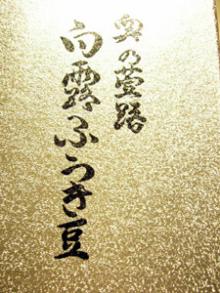 奥の菅路
白露ふうき豆